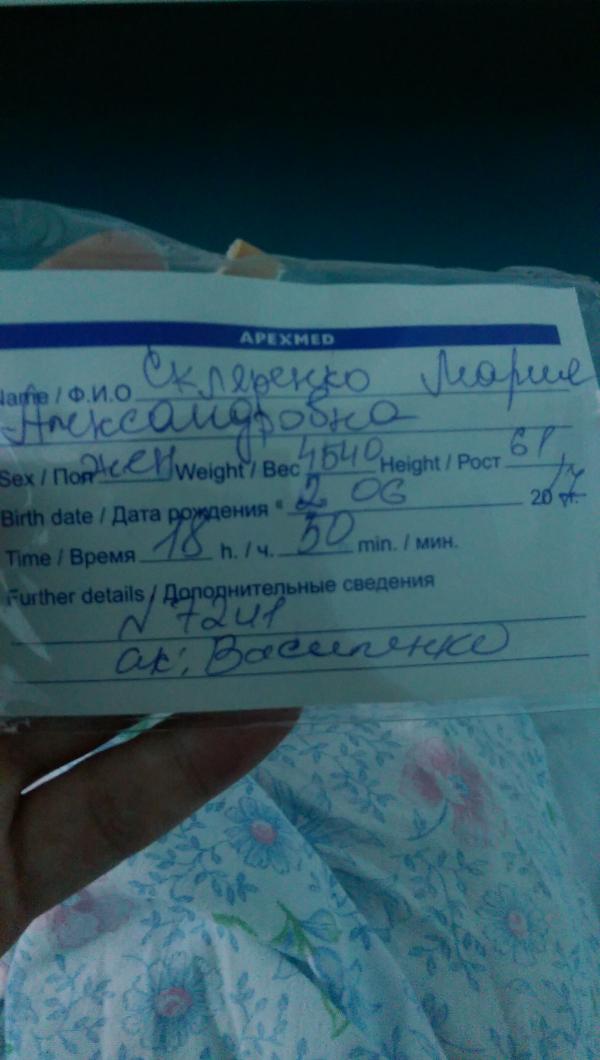 APEXMED
Name / Ф.И.О Скляренко Мария
Александровна
Sex / Пол жен Weight / Вес 4540 Height / Рост 61
Birth date / Дата рождения " 2 06 2017г.
Time / Время 18 h. / ч. 50 min. / мин.
Further details / Дополнительные сведения
N 7241
ак: Василенко